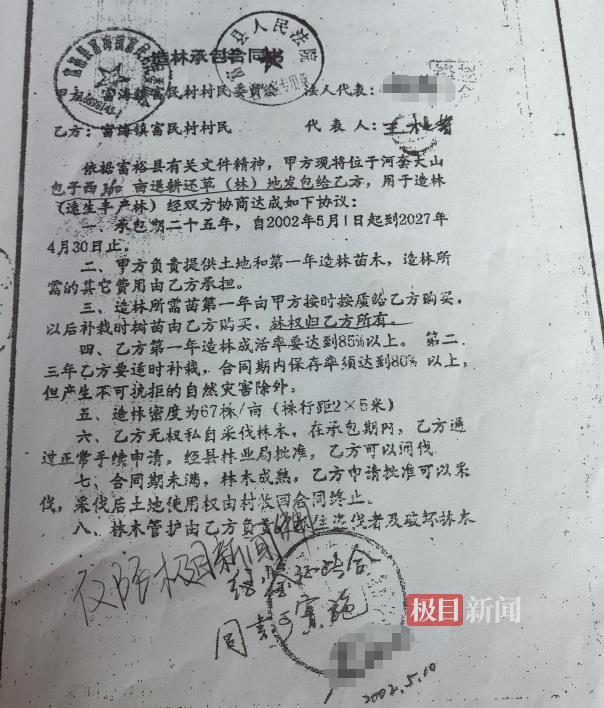 造林承包合同书
甲方：富海镇富民村村民委员会 法人代表：
乙方：富海镇富民村村民 代表人：
依据富裕县有关文件精神，甲方现将位于河套大山
包子西 亩退耕还草（林）地发包给乙方，用于造林
（速生丰产林）经双方协商达成如下协议：
一、承包期二十五年，自2002年5月1日起到2027年
4月30日止。
二、甲方负责提供土地和第一年造林苗木，造林所
需的其它费用由乙方承担。
三、造林所需苗第一年由甲方按时按质给乙方购买，
以后补栽时树苗由乙方购买，林权归乙方所有。
四、乙方第一年造林成活率要达到85%以上。第二、
三年乙方要适时补栽，合同期内保存率须达到80%以上，
但产生不可抗拒的自然灾害除外。
五、造林密度为67株/亩（株行距2×5米）
六、乙方无权私自采伐林木，在承包期内，乙方通
过正常手续申请，经县林业局批准，乙方可以间伐
七、合同期未满，林木成熟，乙方申请批准可以采
伐，采伐后土地使用权由村收回合同终止。
八、林木管护由乙方负责 住盗伐者及破坏林木
仅限极目新闻
同意 实施
极目新闻
2002.5.10